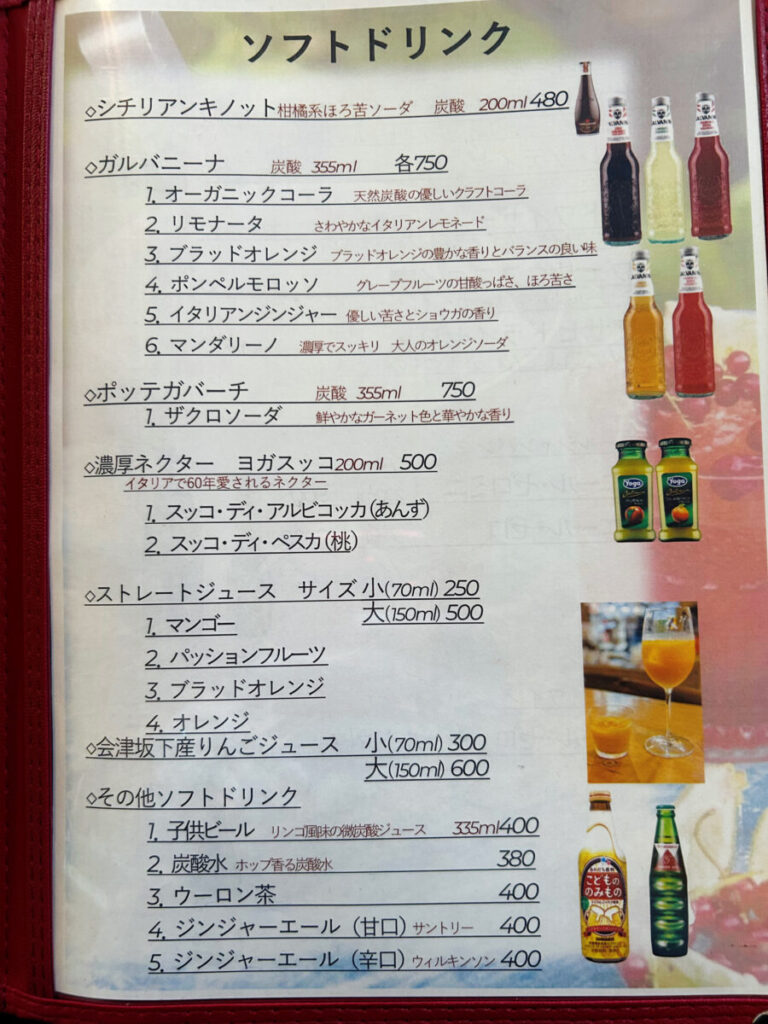 ソフトドリンク
◇シチリアンキノット柑橘系ほろ苦ソーダ 炭酸 200ml 480
◇ガルバニーナ 炭酸 355ml 各750
1. オーガニックコーラ 天然炭酸の優しいクラフトコーラ
2. リモナータ さわやかなイタリアンレモネード
3. ブラッドオレンジ ブラッドオレンジの豊かな香りとバランスの良い味
4. ポンペルモロッソ グレープフルーツの甘酸っぱさ、ほろ苦さ
5. イタリアンジンジャー 優しい苦さとショウガの香り
6. マンダリーノ 濃厚でスッキリ 大人のオレンジソーダ
◇ポッテガバーチ 炭酸 355ml 750
1. ザクロソーダ 鮮やかなガーネット色と華やかな香り
◇濃厚ネクター ヨガスッコ200ml 500
イタリアで60年愛されるネクター
1. スッコ・ディ・アルビコッカ(あんず)
2. スッコ・ディ・ペスカ(桃)
◇ストレートジュース サイズ 小(70ml) 250
大(150ml) 500
1. マンゴー
2. パッションフルーツ
3. ブラッドオレンジ
4. オレンジ
◇会津坂下産りんごジュース 小(70ml) 300
大(150ml) 600
◇その他ソフトドリンク
1. 子供ビール リンゴ風味の微炭酸ジュース 335ml400
2. 炭酸水 ホップ香る炭酸水 380
3. ウーロン茶 400
4. ジンジャーエール（甘口）サントリー 400
5. ジンジャーエール（辛口）ウィルキンソン 400
Yoga
Yoga
こどもの
のみもの